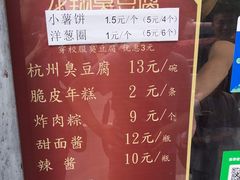 小薯饼 1.5元/个 (5元4个)
洋葱圈 1元/个 (5元6个)
穿校服臭豆腐 优惠3元
杭州臭豆腐 13元/碗
脆皮年糕 2元/条
炸肉粽 9元/个
甜面酱 12元/瓶
辣酱 10元/瓶